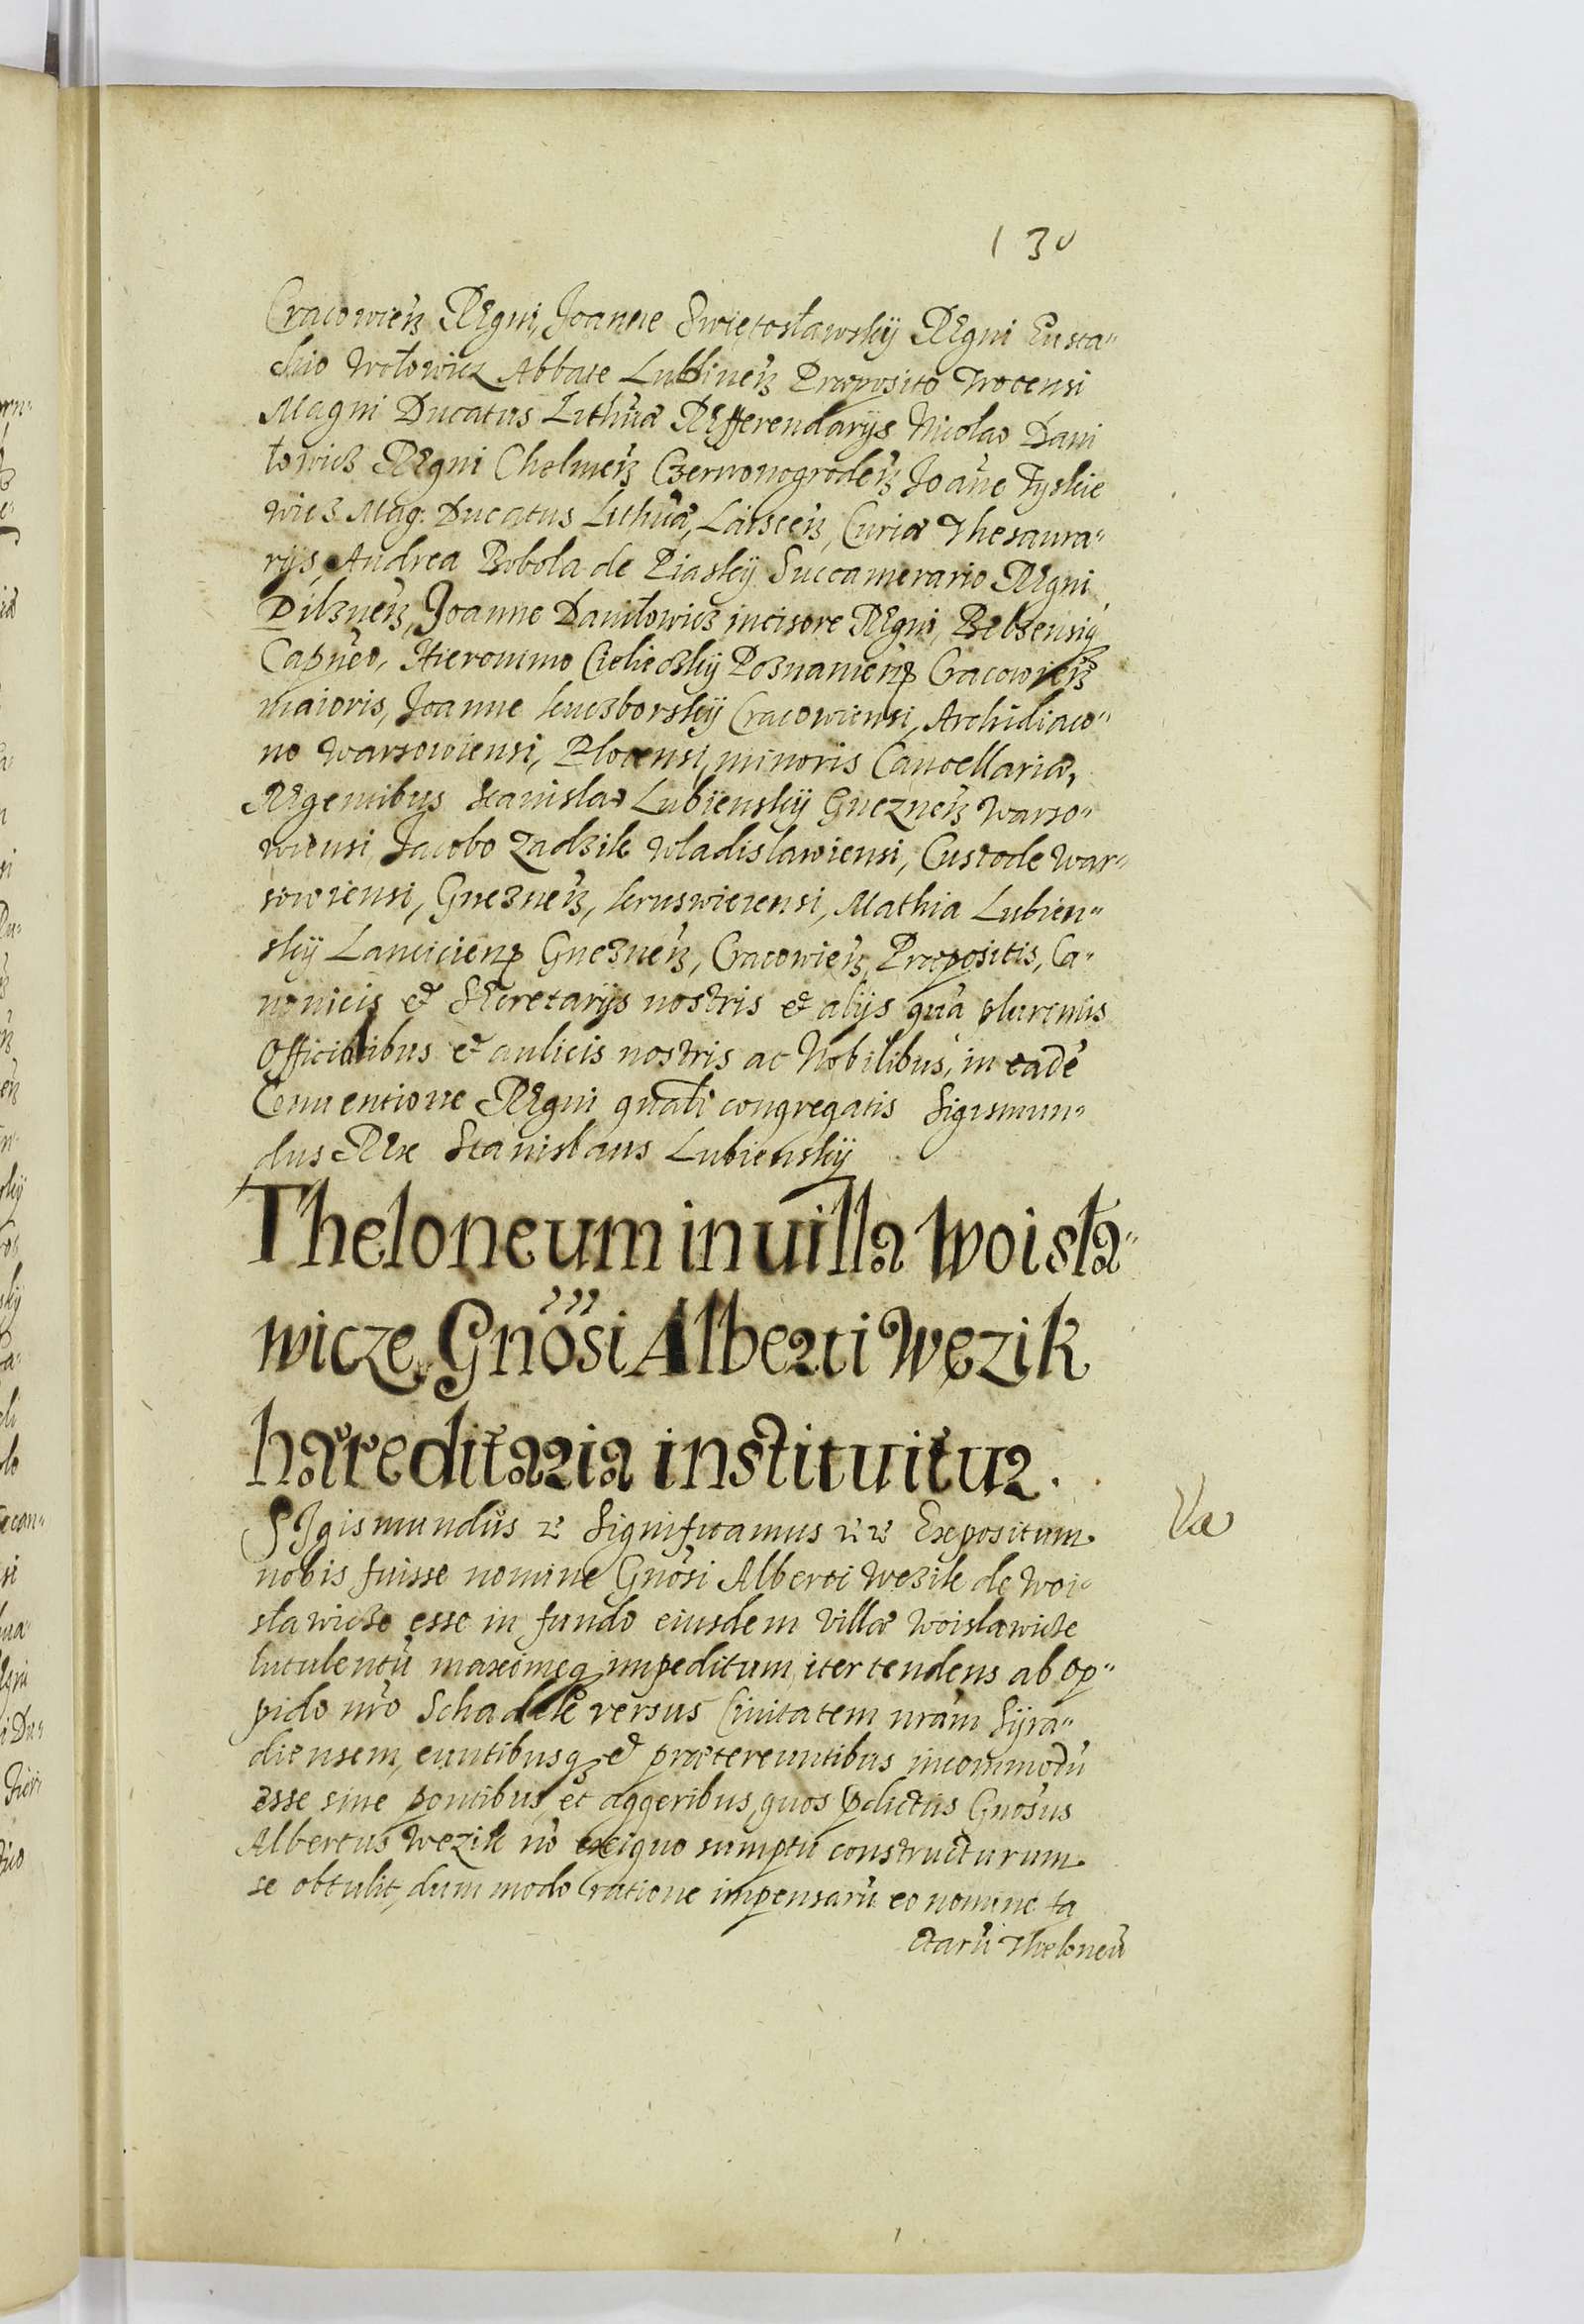 130
Cracowień REgni, Joanne Swiętosławskÿ REgni Eusta„
chio Wołowicz Abbate Lublineń Præposito Trocensi
Magni Ducatus Lithuæ REfferendarijs Nicolao Dani
łowicz REgni Chelmeń Czerwonogrodeń Joane Tyskie
wicz Mag: Ducatus Lithuæ, Curiæ Thesaura„
rijs, Andrea Bobola de Piaskÿ Succamerario REgni
Pilzneń, Joanne Daniłowicz incisore REgni, Belzensiq
Capneo, Hieronimo Cielieckÿ Poznanień Cracowień
maioris, Joanne Kuczborskÿ Cracowiensi, Archidiaco„
no Warsowiensi, Plocensi, minoris Cancellariæ,
REgentibus Stanislao Lubienskÿ Gnezneń Warso„
wiensi, Jacobo Zadzik Wladislawiensi, Custode War„
sowiensi, Gnezneń, Kruswiciensi, Mathia Lubien„
skÿ Lancicień Gnezneń, Cracowień, Præpositis, Ca„
nonicis et SEcretarijs nostris et alijs quã pluremis
Officialibus et aulicis nostris ac Nobilibus, in eadẽ
Conventione REgni gnali congregatis Sigismun„
dus REx Stanislaus Lubienskÿ
Theloneum in uilla Woisła„
wicze Gnosi Alberti Węzik
hæreditaria instituitur.
SIgismundus &c Significamus &c &c Expositum
Va
nobis fuisse nomine Gnosi Alberti Wezik de Woi„
sławicze esse in fundo eiusdem villæ Woislawicze
lutulentũ maximeq impeditum, iter tendens ab op„
pido nro Schadek versus Ciuitatem nram Sÿra„
diensem, euntibusq et prætereuntibus incommodũ
esse sine pontibus, et aggeribus, quos pdictus Gnosus
Albertus Wezik nõ exiguo sumptu constructurum
se obtulit, dum modo ratione impensarũ eo nomine fa
ctarũ Theloneũ